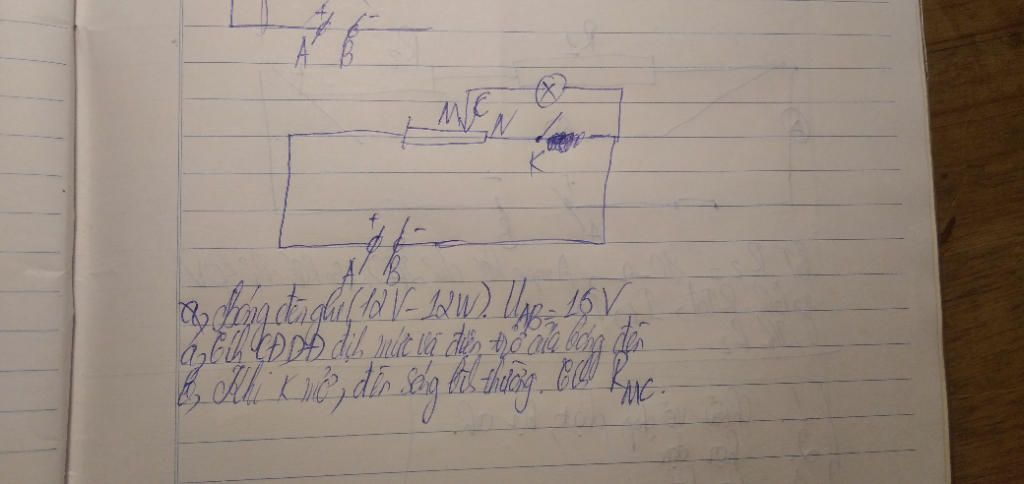 + -
A B
M C N
K
+ -
A B
Bóng đèn ghi (12V - 12W). U_AB = 15V
a, Tính CĐDĐ định mức và điện trở của bóng đèn
b, Khi K mở, đèn sáng bình thường. Tính R_MC.